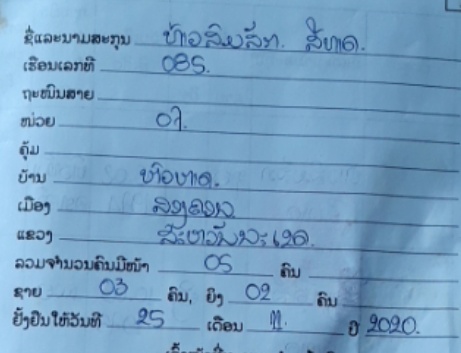 ຊື່ແລະນາມສະກຸນ ທ້າວ ສົມສັກ. ສີຫາດ.
ເຮືອນເລກທີ 085.
ຖະໜົນສາຍ
ໜ່ວຍ 07.
ຄຸ້ມ
ບ້ານ
ເມືອງ
ແຂວງ ສະຫວັນນະເຂດ.
ລວມຈຳນວນຄົນມີໜ້າ 05 ຄົນ
ຊາຍ 03 ຄົນ, ຍິງ 02 ຄົນ
ຢັ້ງຢືນໃຫ້ວັນທີ 25 ເດືອນ 11. ປີ 2020.